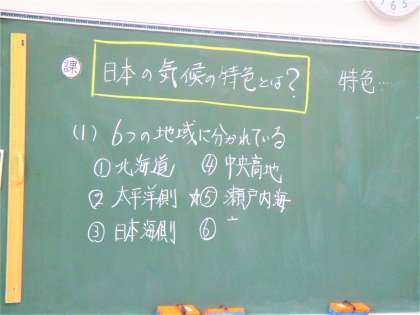 課 日本の気候の特色とは? 特色…
(1) 6つの地域に分かれている
① 北海道 ④ 中央高地
② 太平洋側 ★⑤ 瀬戸内海
③ 日本海側 ⑥